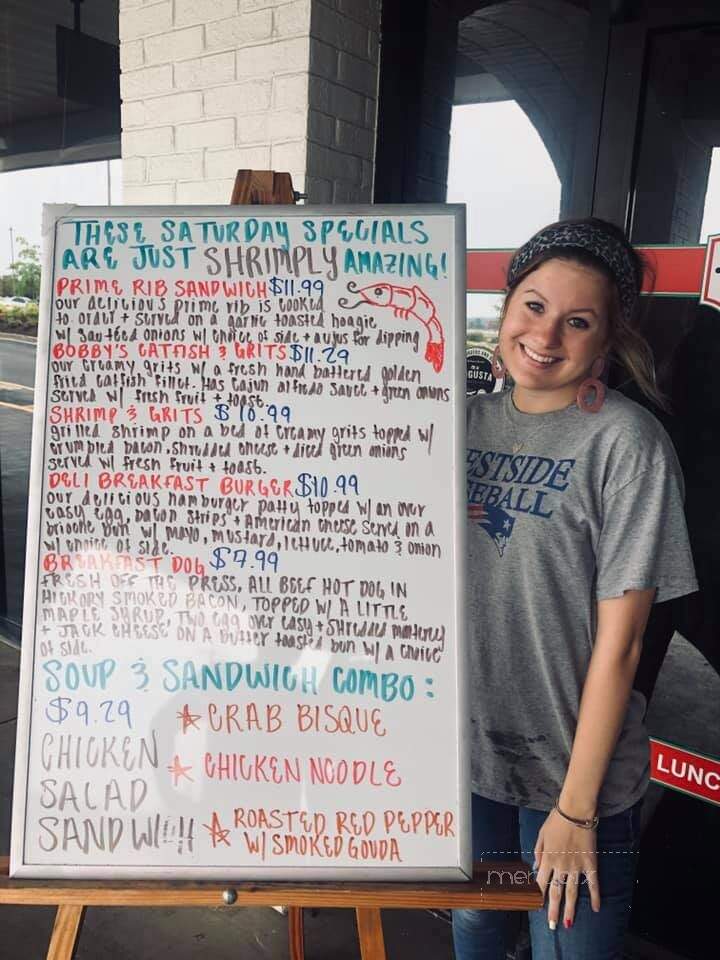 THESE SATURDAY SPECIALS
ARE JUST SHRIMPLY AMAZING!
PRIME RIB SANDWICH $11.99
our delicious prime rib is cooked
to order + served on a garlic toasted hoagie
w/ sautéed onions w/ choice of side + aujus for dipping
BOBBY'S CATFISH & GRITS $11.29
our creamy grits w/ a fresh hand battered golden
fried catfish fillet. Has cajun alfredo sauce + green onions
served w/ fresh fruit + toast.
SHRIMP & GRITS $10.99
grilled shrimp on a bed of creamy grits topped w/
crumbled bacon, shredded cheese + diced green onions
served w/ fresh fruit + toast.
DELI BREAKFAST BURGER $10.99
our delicious hamburger patty topped w/ an over
easy egg, bacon strips + American cheese served on a
brioche bun w/ mayo, mustard, lettuce, tomato & onion
w/ choice of side.
BREAKFAST DOG $7.99
FRESH OFF THE PRESS, ALL BEEF HOT DOG IN
HICKORY SMOKED BACON, TOPPED W/ A LITTLE
MAPLE SYRUP, TWO EGG over easy + Shredded monterey
+ JACK CHEESE ON A Butter toasted bun w/ a choice
of side.
SOUP & SANDWICH COMBO:
$9.29
CRAB BISQUE
CHICKEN
SALAD
SANDWI!!!!
CHICKEN NOODLE
ROASTED RED PEPPER
W/ SMOKED GOUDA
ESTSIDE
EBALL
GUSTA
LUNC
menupix